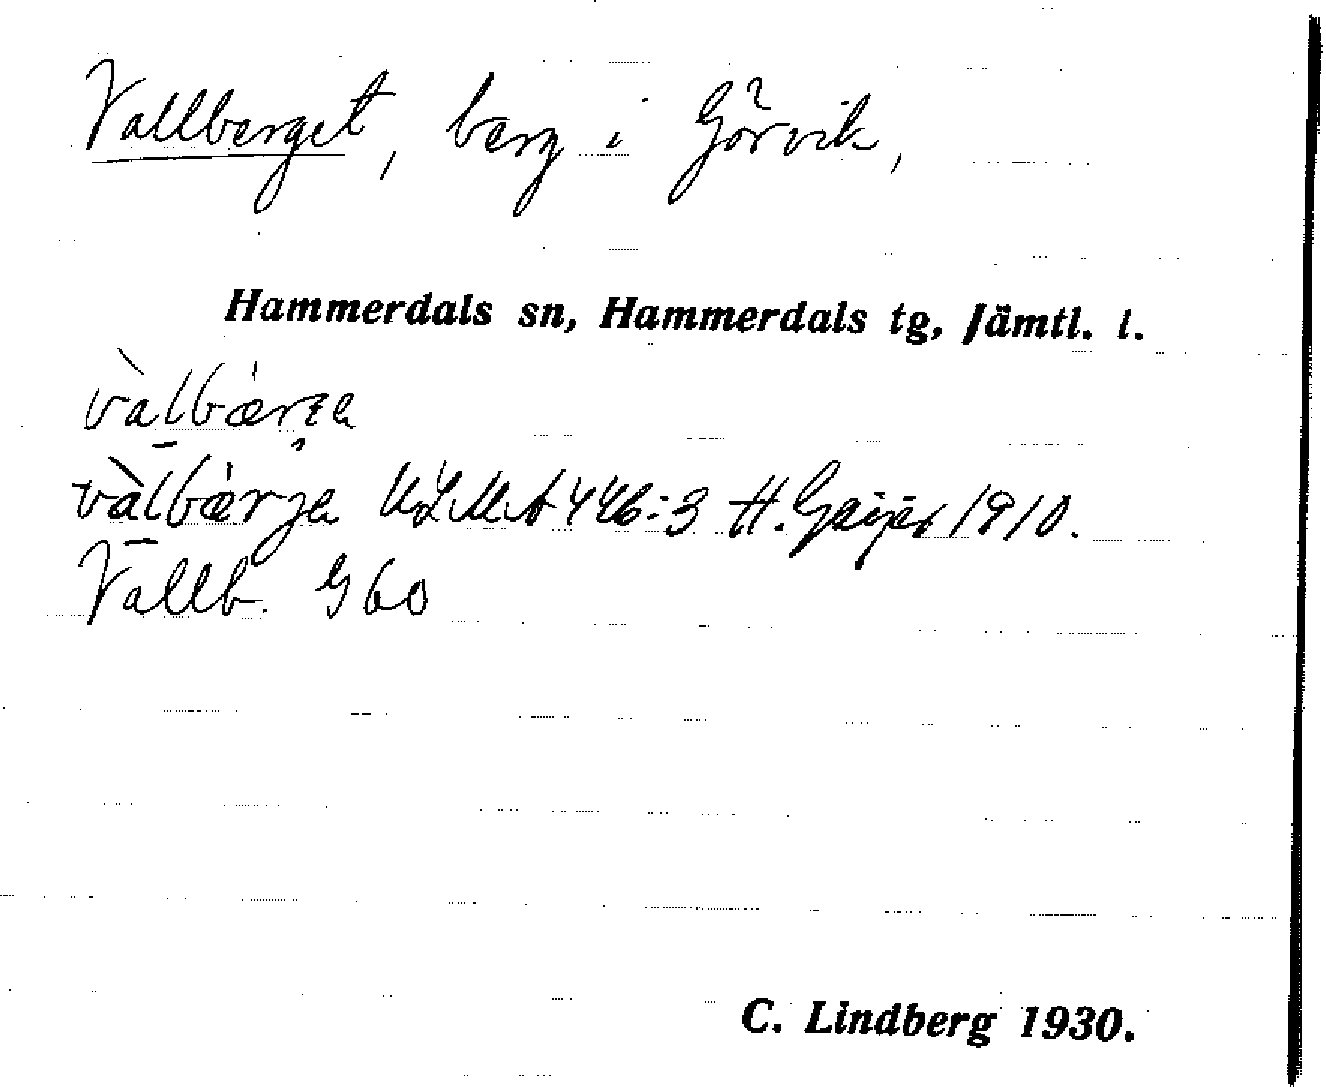 Vallberget, berg i Görvik,
Hammerdals sn, Hammerdals tg, Jämtl. l.
vàlbærga
vàlbærja ULMA 446:3 H. Geijer 1910.
Vallb. G 60
C. Lindberg 1930.